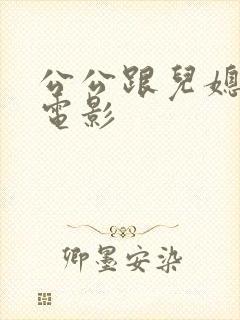 公公跟兒媳
電影
卿墨安染